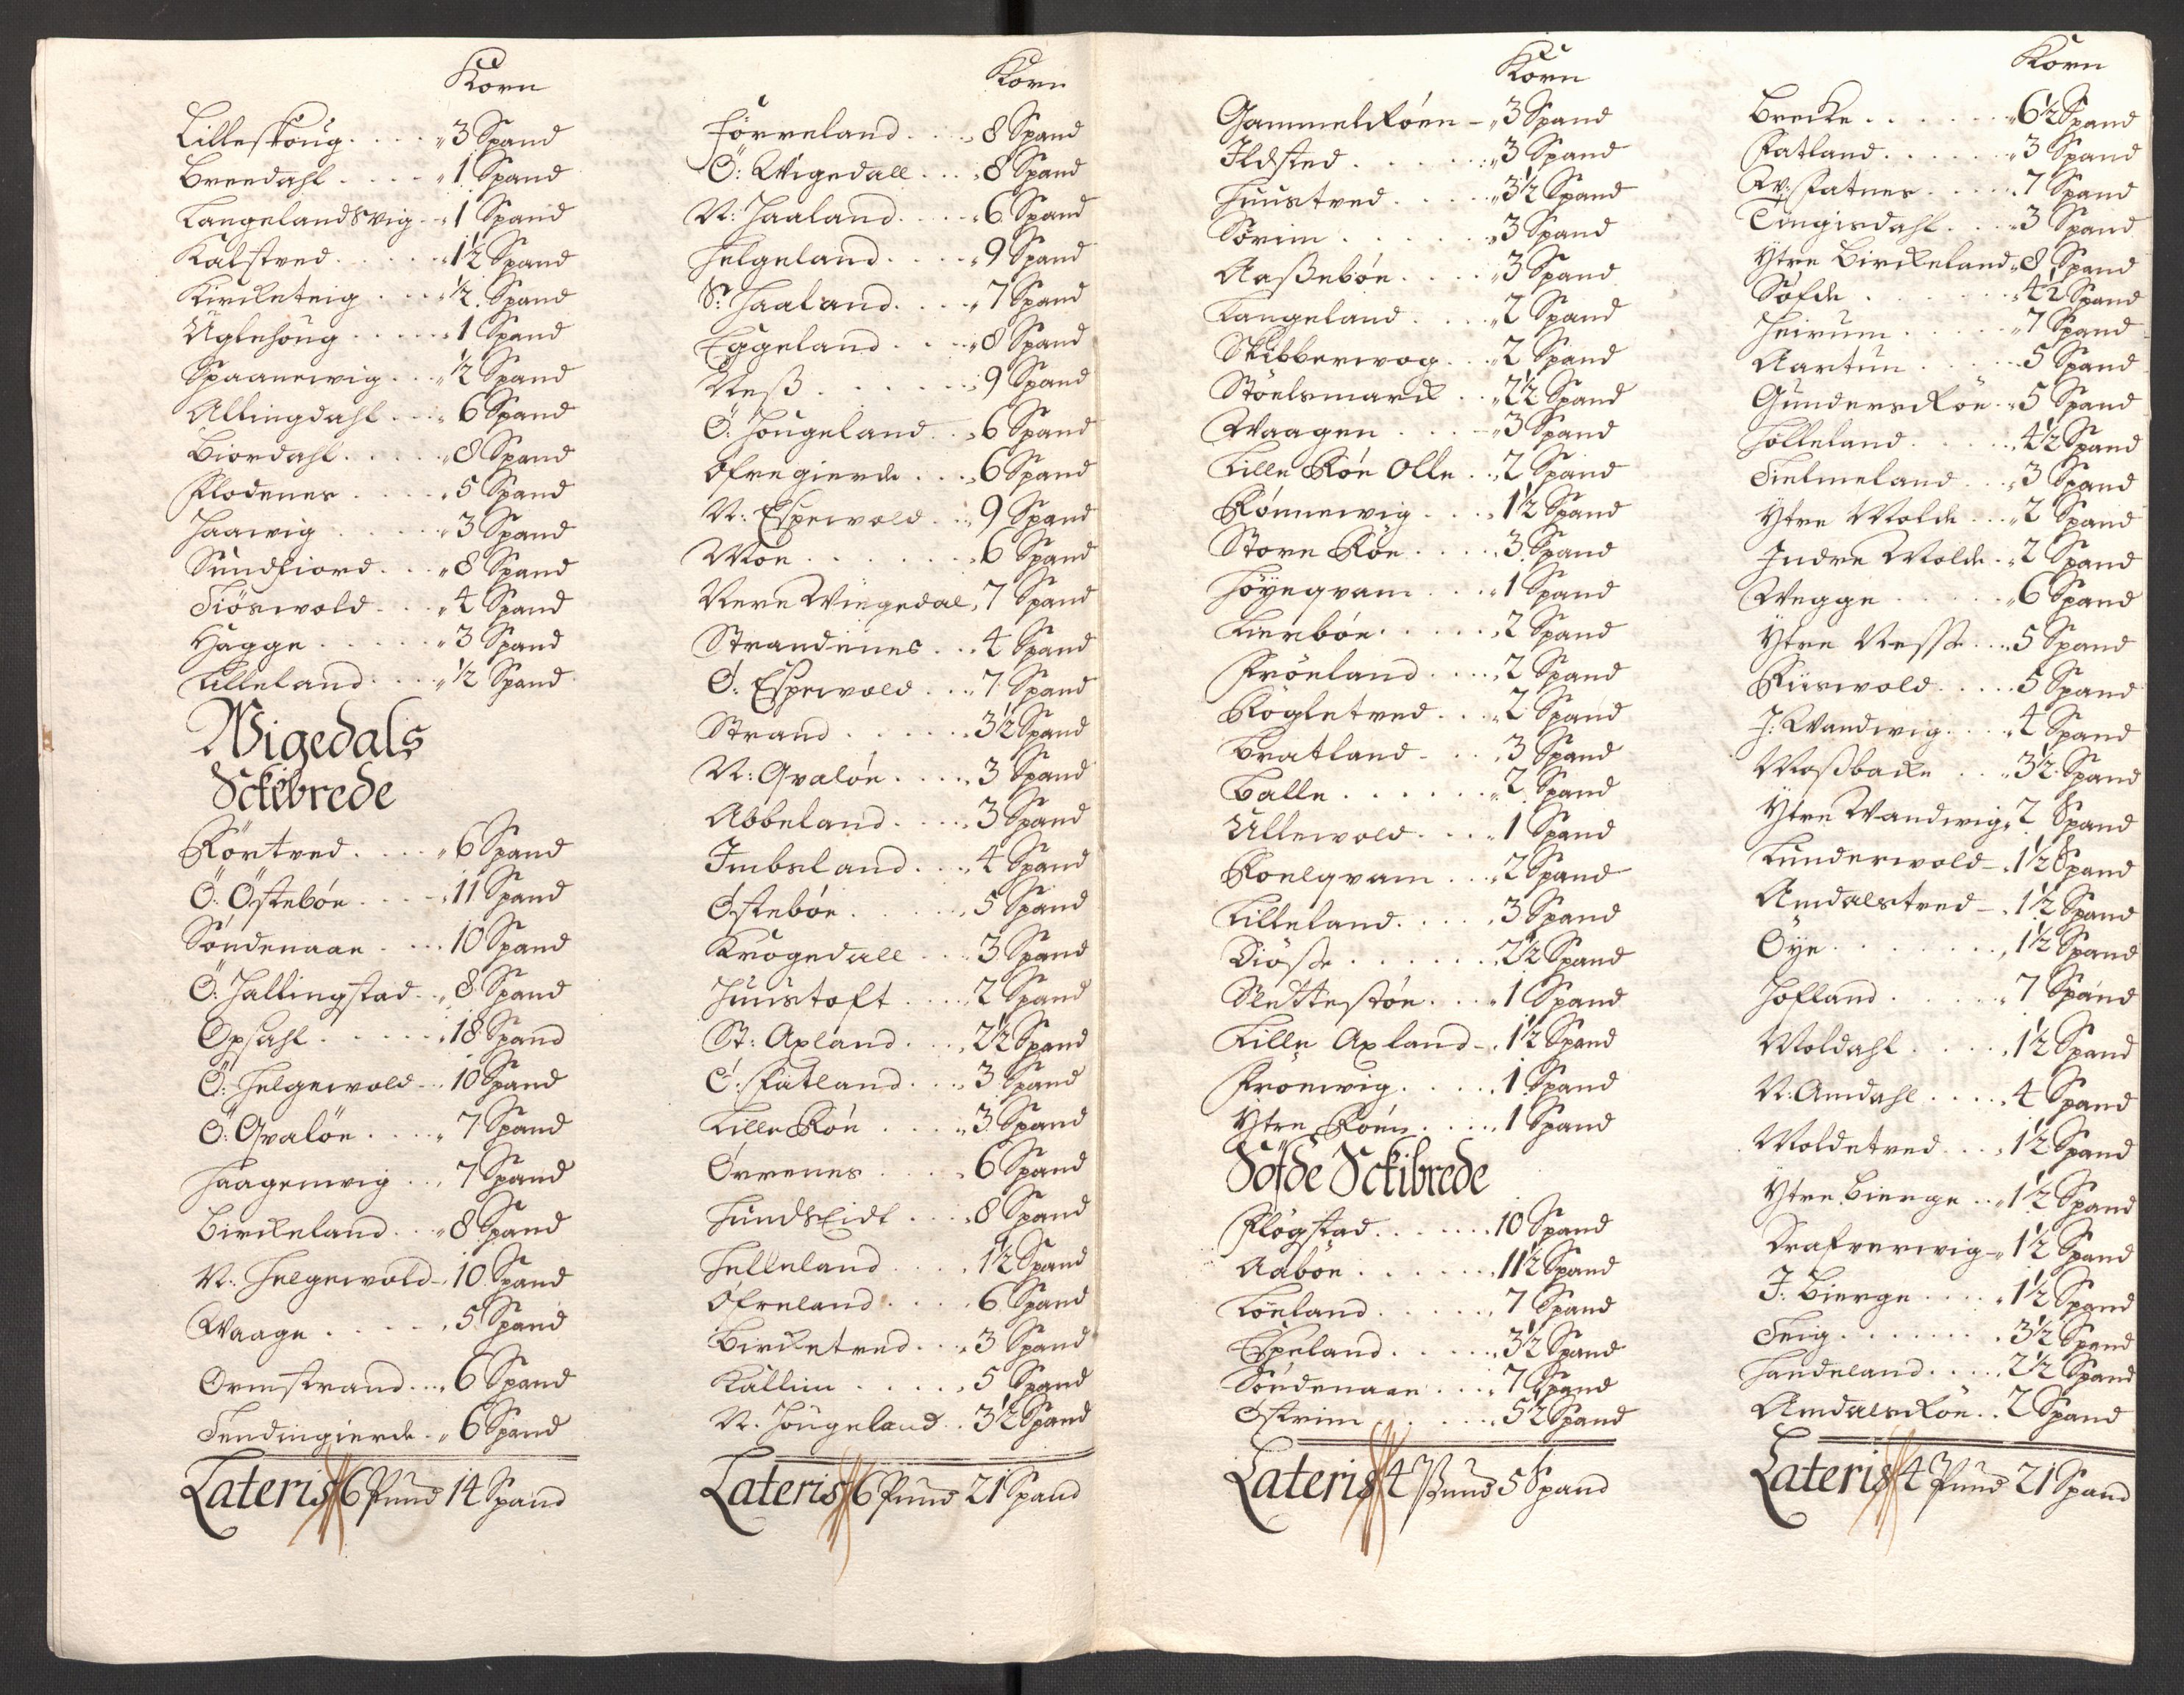 Korn
Lilleskoug . . . . 3 Spand
Breedahl . . . . 1 Spand
Langelandsvig . . 1 Spand
Kalstved . . . . . 1½ Spand
Kircketeig . . . ½ Spand
Uglehoug . . . . . 1 Spand
Spaanewig . . . ½ Spand
Allingdahl . . . 6 Spand
Biordahl . . . . . 8 Spand
Flodenes . . . . 5 Spand
Haawig . . . . . 3 Spand
Sundfiord . . . 8 Spand
Tiøswold . . . 4 Spand
Hagge . . . . . 3 Spand
Lilleland . . . . ½ Spand
Wigedals
Sckibrede
Rørtved . . . . 6 Spand
Ö: Östebøe . . . . 11 Spand
Søndenaae . . . . 10 Spand
Ö: Hallingstad . . 8 Spand
Opsahl . . . . . 18 Spand
Ö: Helgewold . . 10 Spand
Ö: Qvaløe . . . . 7 Spand
Haagenwig . . . 7 Spand
Birckeland . . . 8 Spand
N: Helgewold . . 10 Spand
Waage . . . . . 5 Spand
Ormstrand . . . . 6 Spand
Tendingierde . . 6 Spand
Lateris 6 Pund 14 Spand
Korn
Førreland . . . . 8 Spand
Ö: Wigedall . . . 8 Spand
N: Haaland . . . . 6 Spand
Helgeland . . . . 9 Spand
S: Haaland . . . . 7 Spand
Eggeland . . . . 8 Spand
Neß . . . . . . 9 Spand
Ö: Hougeland . . . 6 Spand
Øfregierde . . . 6 Spand
N: Espewold . . . 9 Spand
Moe . . . . . . . 6 Spand
Nere Wiegedal, 7 Spand
Strandenes . . . 4 Spand
Ö: Espewold . . . 7 Spand
Strand . . . . . . 3½ Spand
N: Qvaløe . . . . 3 Spand
Abbeland . . . . 3 Spand
Imbsland . . . . 4 Spand
Østebøe . . . . . 5 Spand
Krogedall . . . 3 Spand
Huustoft . . . . 2 Spand
St: Axland . . . . 2½ Spand
Ö: Fatland . . . . 3 Spand
Lille Røe . . . . 3 Spand
Ørrenes . . . . 6 Spand
Hundseidt . . . . 8 Spand
Helleland . . . . 1½ Spand
Øfreland . . . . 6 Spand
Bircketved . . . 3 Spand
Kallim . . . . . 5 Spand
N. Hougeland . . 3½ Spand
Lateris 6 Pund 21 Spand
Korn
Gammelrøen - 3 Spand
Ildsted . . . . . 3 Spand
Huustved . . . . 3½ Spand
Sørim . . . . . . 3 Spand
Aaßebøe . . . . 3 Spand
Langeland . . . 2 Spand
Skibberwog . . . 2 Spand
Støelsmarck . . 2½ Spand
Waagen . . . . 3 Spand
Lille Røe Olle . . 2 Spand
Rønnewig . . . . 1½ Spand
Store Røe . . . . 3 Spand
Høyeqvam . . . . 1 Spand
Lierbøe . . . . . 2 Spand
Frøeland . . . . 2 Spand
Røgletved . . . 2 Spand
Bratland . . . . 3 Spand
Balle . . . . . . 2 Spand
Ullewold . . . . 1 Spand
Roelqvam . . . 2 Spand
Lilleland . . . . 3 Spand
Diøsse . . . . . . 2½ Spand
Slettestøe . . . . 1 Spand
Lille Axland . . 1½ Spand
Frøewig . . . . . 1 Spand
Ytre Røen . . . . 1 Spand
Søfde Sckibrede
Fløgstad . . . . . . 10 Spand
Aabøe . . . . . . 11½ Spand
Løeland . . . . . 7 Spand
Espeland . . . . . 3½ Spand
Søndenaae . . . . 7 Spand
Østrim . . . . . 5½ Spand
Lateris 4 Pund 5 Spand
Korn
Brecke . . . . . 6½ Spand
Fatland . . . . . 3 Spand
W: Fatnes . . . . 7 Spand
Tengisdahl . . . 3 Spand
Ytre Birckeland 8 Spand
Søfde . . . . . . 4½ Spand
Heirum . . . . . 7 Spand
Aartun . . . . . 5 Spand
Gunderskøe . . 5 Spand
Holleland . . . . . 4½ Spand
Tielmeland . . . 3 Spand
Ytre Molde . . . 2 Spand
Indre Molde . . 2 Spand
Wegge . . . . . 6 Spand
Ytre Nesse . . . . 5 Spand
Riiswold . . . . . 5 Spand
I: Wandwig . . . . 4 Spand
Moßbacke . . . 3½ Spand
Ytre Wandwig 2 Spand
Lunderwold - 1½ Spand
Amdalstved - 1½ Spand
Øye . . . . . . . . 1½ Spand
Hofland . . . . . 7 Spand
Moldahl . . . . . 1½ Spand
N: Amdahl . . . . 4 Spand
Moldetved . . . . 1½ Spand
Ytre Bierge . . . 1½ Spand
Drafverwig - 1½ Spand
I: Bierge . . . . . 1½ Spand
Teig . . . . . . . . 3½ Spand
Handeland . . . . . 2½ Spand
Amdalsrøe . . 2 Spand
Lateris 4 Pund 21 Spand